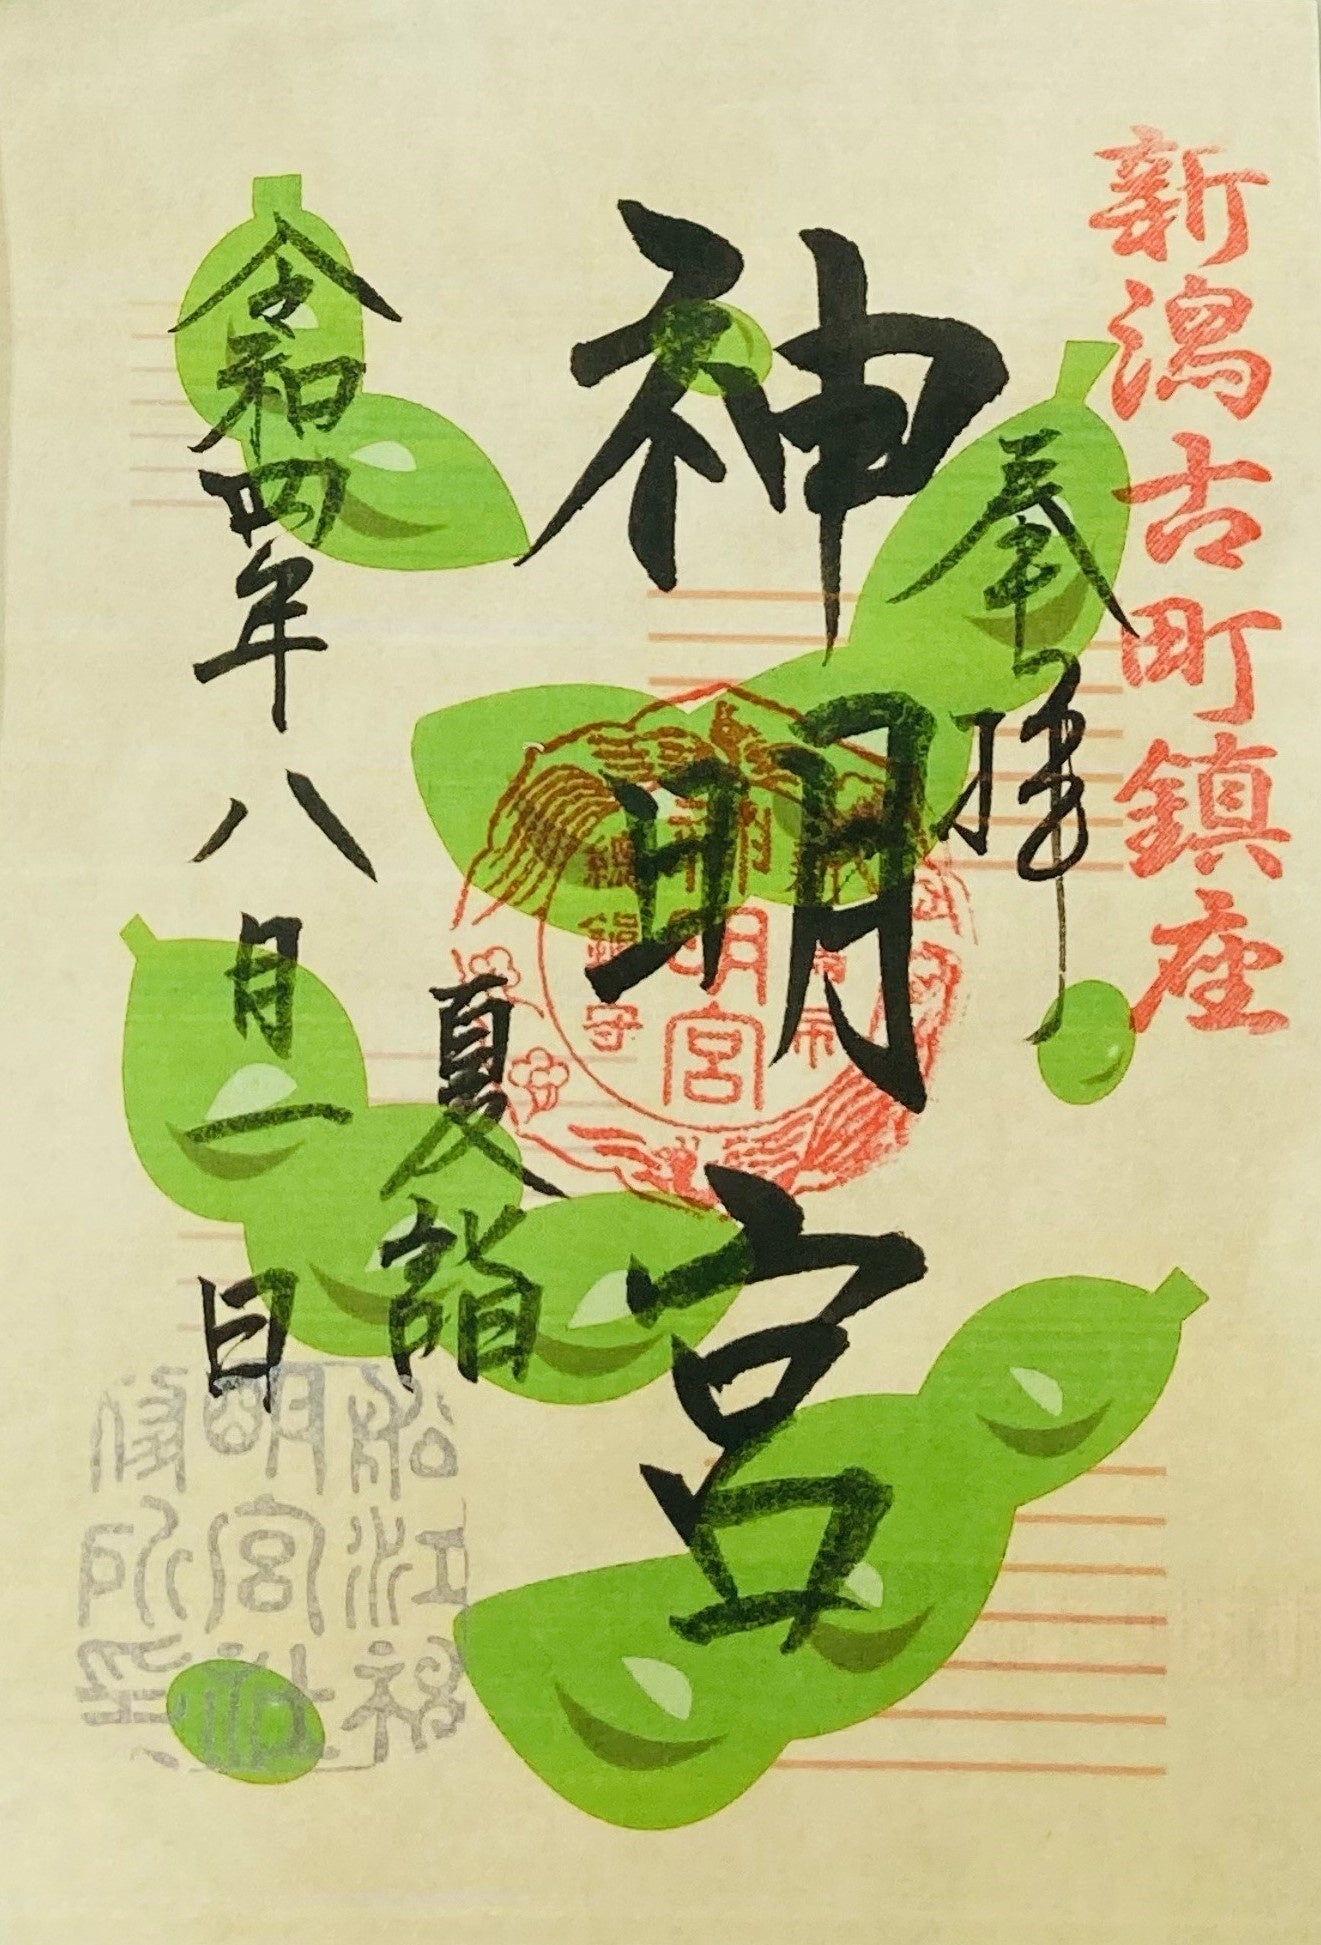 新潟古町鎮座
奉拝
神明宮
神明宮
總鎮守
夏詣
令和四年八月一日
船江神
明宮社
務所印